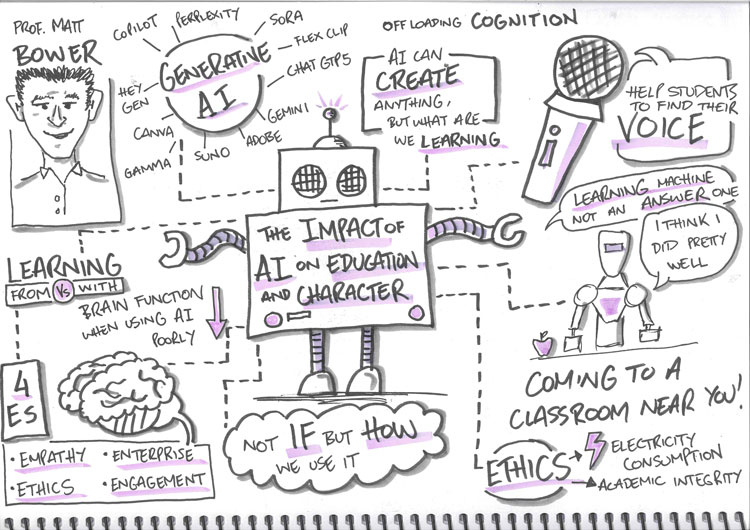 PROF. MATT
BOWER
COPILOT
PERPLEXITY
SORA
FLEX CLIP
CHAT GTP5
GEMINI
ADOBE
SUNO
GAMMA
CANVA
HEY
GEN
GENERATIVE
AI
OFF LOADING COGNITION
AI CAN
CREATE
ANYTHING,
BUT WHAT ARE
WE LEARNING
HELP STUDENTS
TO FIND THEIR
VOICE
LEARNING MACHINE
NOT AN ANSWER ONE
I THINK I
DID PRETTY
WELL
THE IMPACT OF
AI ON EDUCATION
AND CHARACTER
LEARNING
FROM VS WITH
BRAIN FUNCTION
WHEN USING AI
POORLY
4
ES
• EMPATHY • ENTERPRISE
• ETHICS • ENGAGEMENT
NOT IF BUT HOW
WE USE IT
COMING TO A
CLASSROOM NEAR YOU!
ETHICS
ELECTRICITY
CONSUMPTION
ACADEMIC INTEGRITY